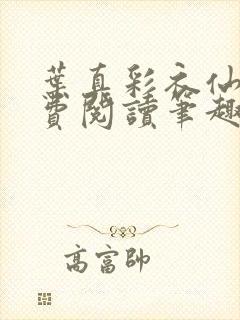 葉真彩衣仙
費閱讀筆趣
高富帥